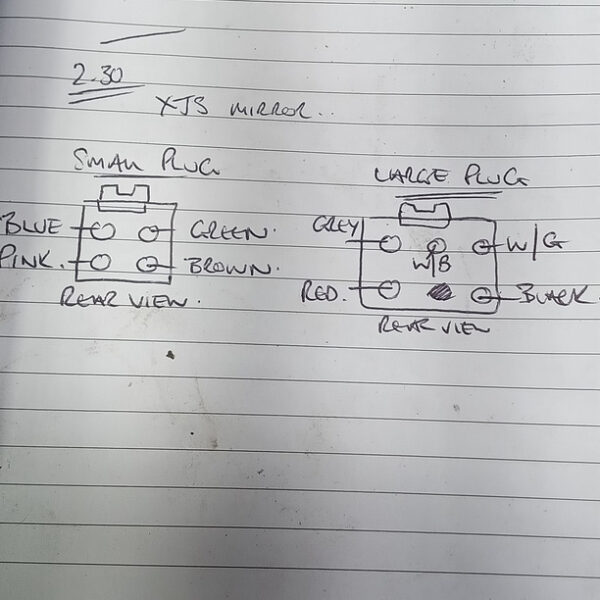 2.30
XJS MIRROR..
SMALL PLUG
BLUE GREEN.
PINK. BROWN.
REAR VIEW.
LARGE PLUG
GREY W/B W/G
RED. BLACK
REAR VIEW